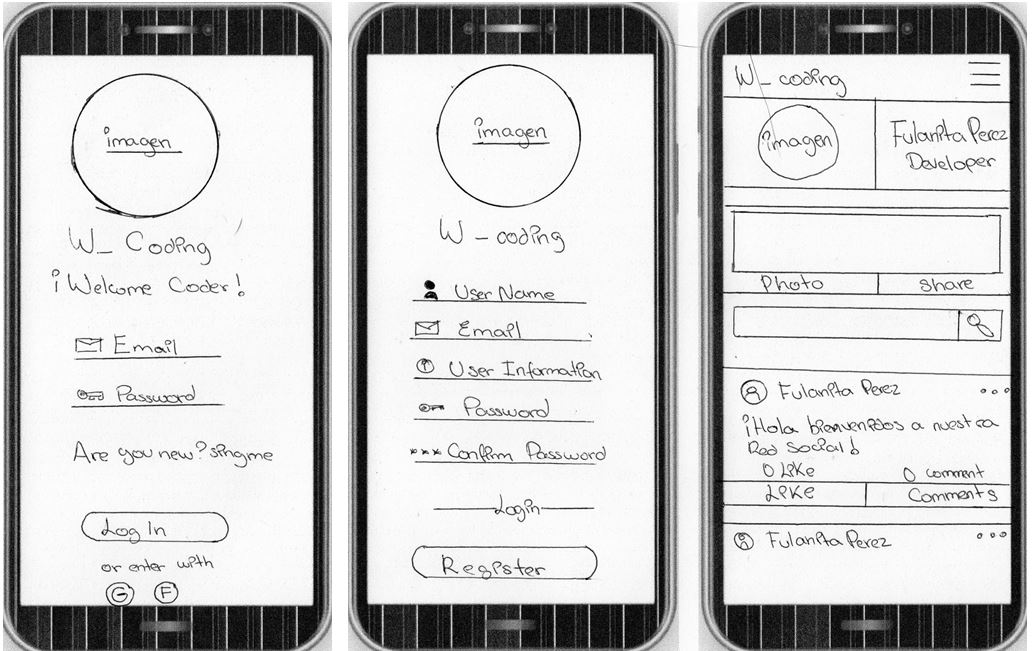 imagen
W_ Coding
¡ Welcome Coder !
Email
Password
Are you new? singme
Log In
or enter with
G F
imagen
W - coding
User Name
Email
User Information
Password
*** Confirm Password
Login
Register
W_ coding
imagen
Fulanita Perez
Developer
Photo
share
Fulanita Perez
...
¡Hola bienvenidos a nuestra
Red Social!
0 Like
0 comment
Like
Comments
Fulanita Perez
...